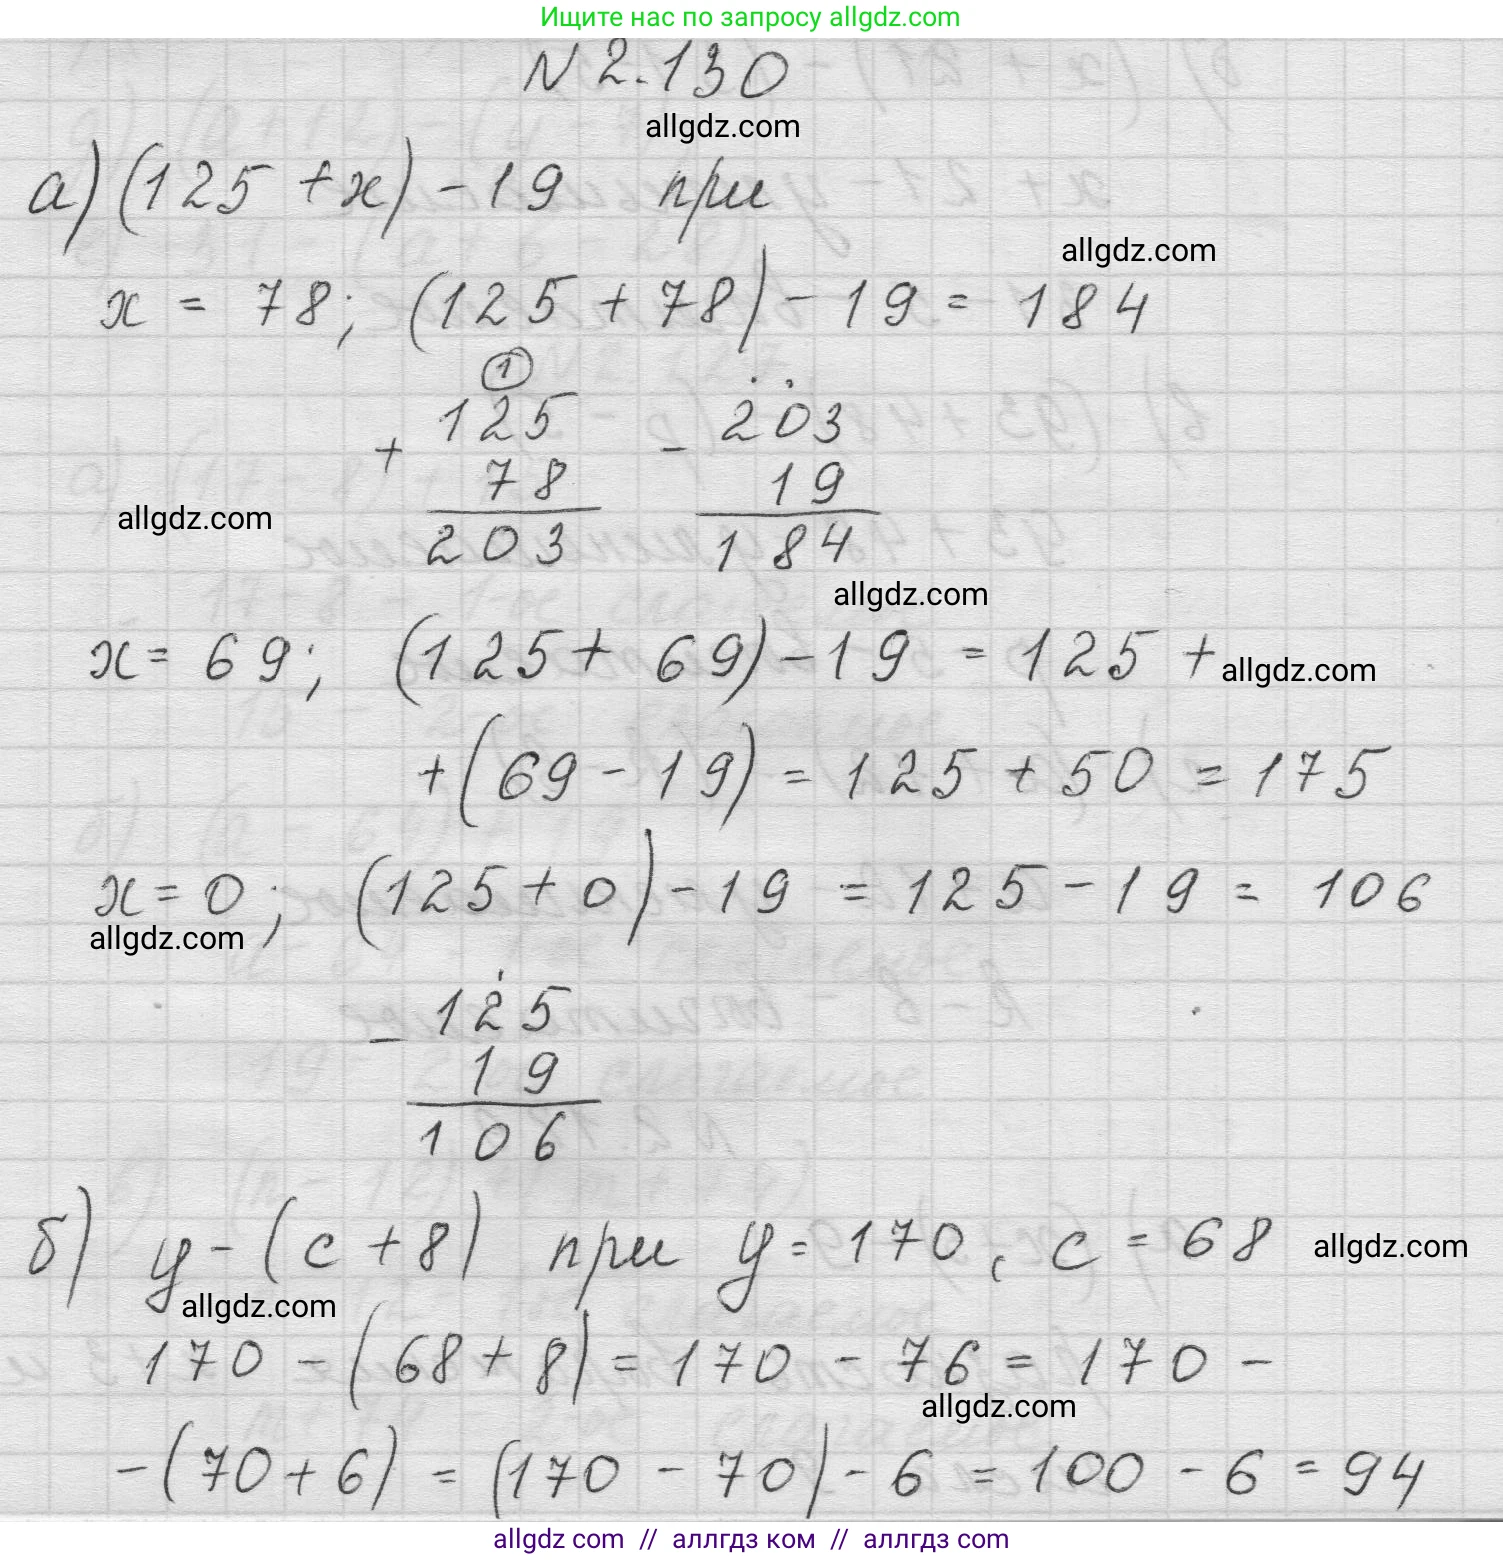 Ищите нас по запросу allgdz.com
N 2.130
allgdz.com
а) (125 + x) - 19 при
allgdz.com
x = 78; (125 + 78) - 19 = 184
1
125 203
+ -
78 19
allgdz.com
203 184
allgdz.com
x = 69; (125 + 69) - 19 = 125 +
allgdz.com
+ (69 - 19) = 125 + 50 = 175
x = 0; (125 + 0) - 19 = 125 - 19 = 106
allgdz.com
125
-
19
106
б) y - (c + 8) при y = 170, c = 68
allgdz.com
allgdz.com
170 - (68 + 8) = 170 - 76 = 170 -
allgdz.com
- (70 + 6) = (170 - 70) - 6 = 100 - 6 = 94
allgdz.com // аллгдз ком // аллгдз com